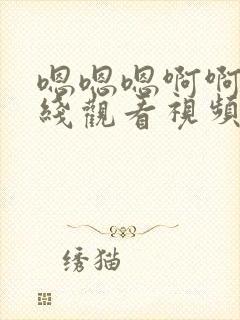 嗯嗯嗯啊啊
綫觀看視頻
绣猫